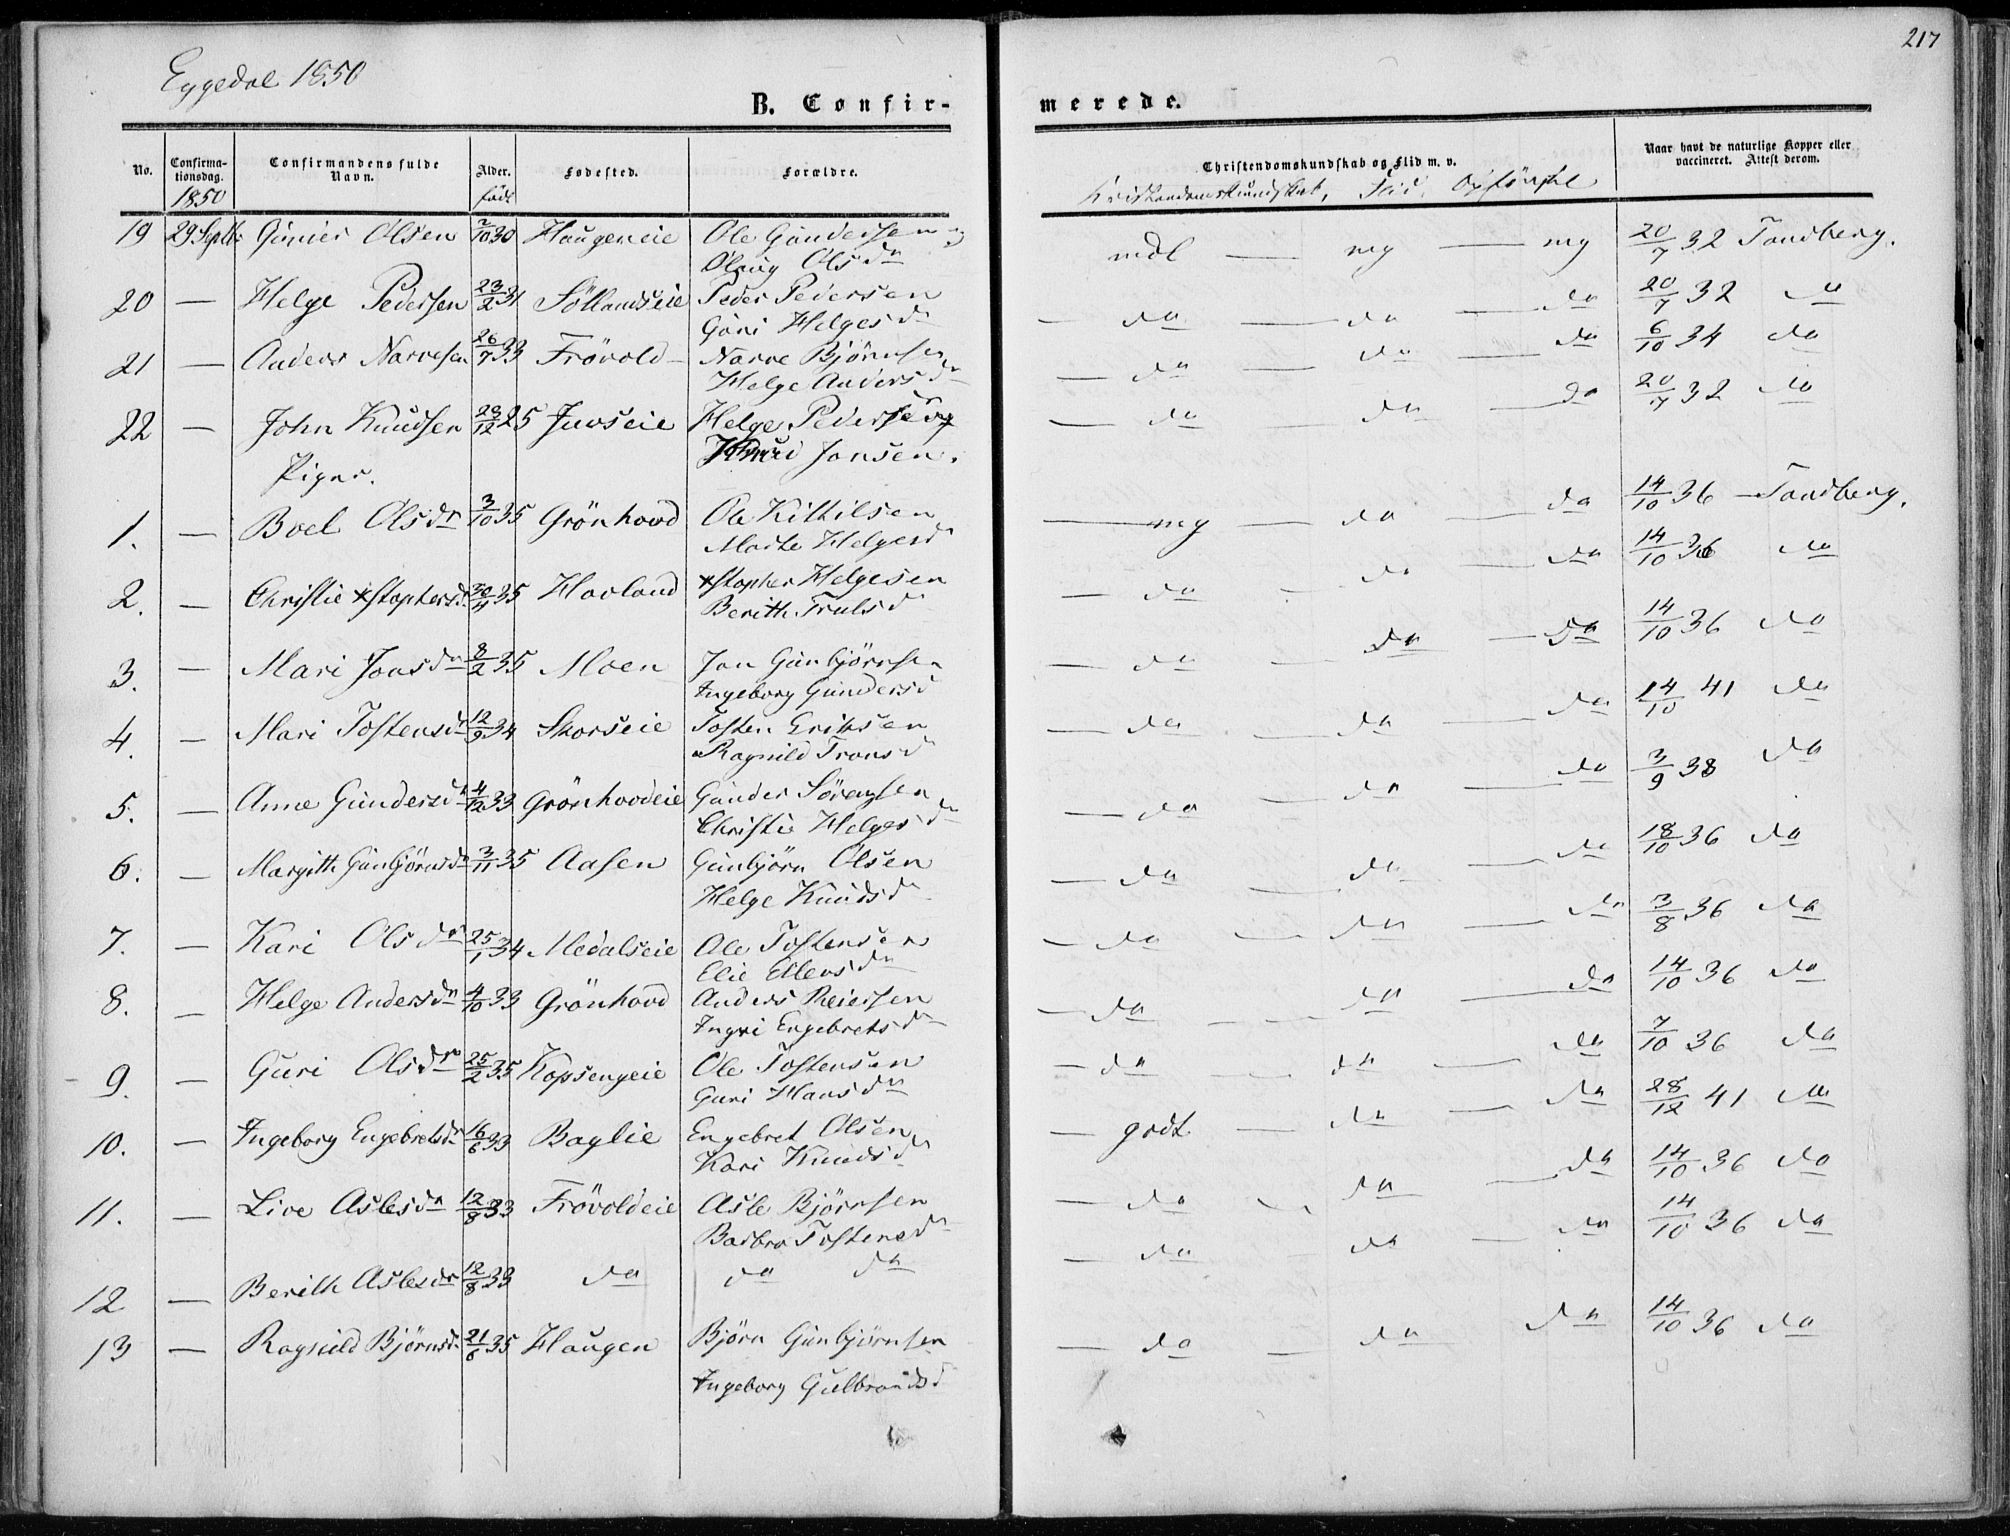 217
Eggedal 1850
B. Confir-
merede.
No.
Confirma-
tionsdag.
1850
Confirmandens fulde
Navn.
Alder.
født
Fødested.
Forældre.
Christendomskundskab og Flid m. v.
Kristendomskundskab, Flid, Opførsel
Naar havt de naturlige Kopper eller
vaccineret. Attest derom.
19 29 Septbr Gunder Olsen 2/10 30 Haugeneie Ole Gundersen og mdl — mg — mg 20/7 32 Tandberg.
Olaug Olsdr
20 — Helge Pedersen 23/2 31 Söllandseie Peder Pedersen — do — do — do 20/7 32 do
Guri Helgesdr
21 — Anders Narvesen 26/7 33 Frövold Narve Björnsen — do — do — do 6/10 34 do
Helge Andersdr
22 — John Knudsen 29/12 25 Juvseie Helge Peders — do do — do 20/7 32 do
Jonsen.
Piger.
1. — Boel Olsdr 3/10 35 Grönhovd Ole Kittilsen — mg — do — do 14/10 36 — Tandberg.
Marte Helgesd
2. — Christie Xstophersdr 30/4 35 Havland Xstopher Helgesen — do - do — do 14/10 36 do
Berith Trulsd
3. — Mari Jonsdr 8/2 35 Moen Jon Gunbjörnsen — do — do — do 14/10 36 do
Ingeborg Gundersd
4. — Mari Tostensdr 12/9 34 Skorseie Tosten Eriksen — do — do — do 14/10 41 do
Ragnild Tronsd
5. — Anne Gundersdr 4/12 33 Grönhovdeie Gunder Sörensen — do — do — do 3/9 38 do
Christie Helgesdr
6. — Margith Gunbjörnsdr 3/11 35 Aasen Gunbjörn Olsen — do — do — do 18/10 36 do
Helge Knudsdr
7. — Kari Olsdr 25/1 34 Medalseie Ole Tostensen — do — do — do 3/8 36 do
Elie Ellensdr
8. — Helge Andersdr 4/10 33 Grönhovd Anders Reiersen — do — do — do 14/10 36 do
Ingri Engebretsdr
9. — Guri Olsdr 25/2 35 Kopsengeie Ole Tostensen — do do — do 7/10 36 do
Guri Hansdr
10. — Ingeborg Engebretsdr 16/6 33 Baglie Engebret Olsen — godt — do — do 28/12 41 do
Kari Knudsdr
11. — Live Aslesdr 12/8 33 Frövoldeie Asle Björnsen — do — do — do 14/10 36 do
Barbro Tostensdr
12 — Berith Aslesdr 12/8 33 do do do — do — do — do 14/10 36 do
13 — Ragnild Björnsdr 21/6 35 Haugen Björn Gunbjörnsen — do — do do 14/10 36 do
Ingeborg Gulbrandsd